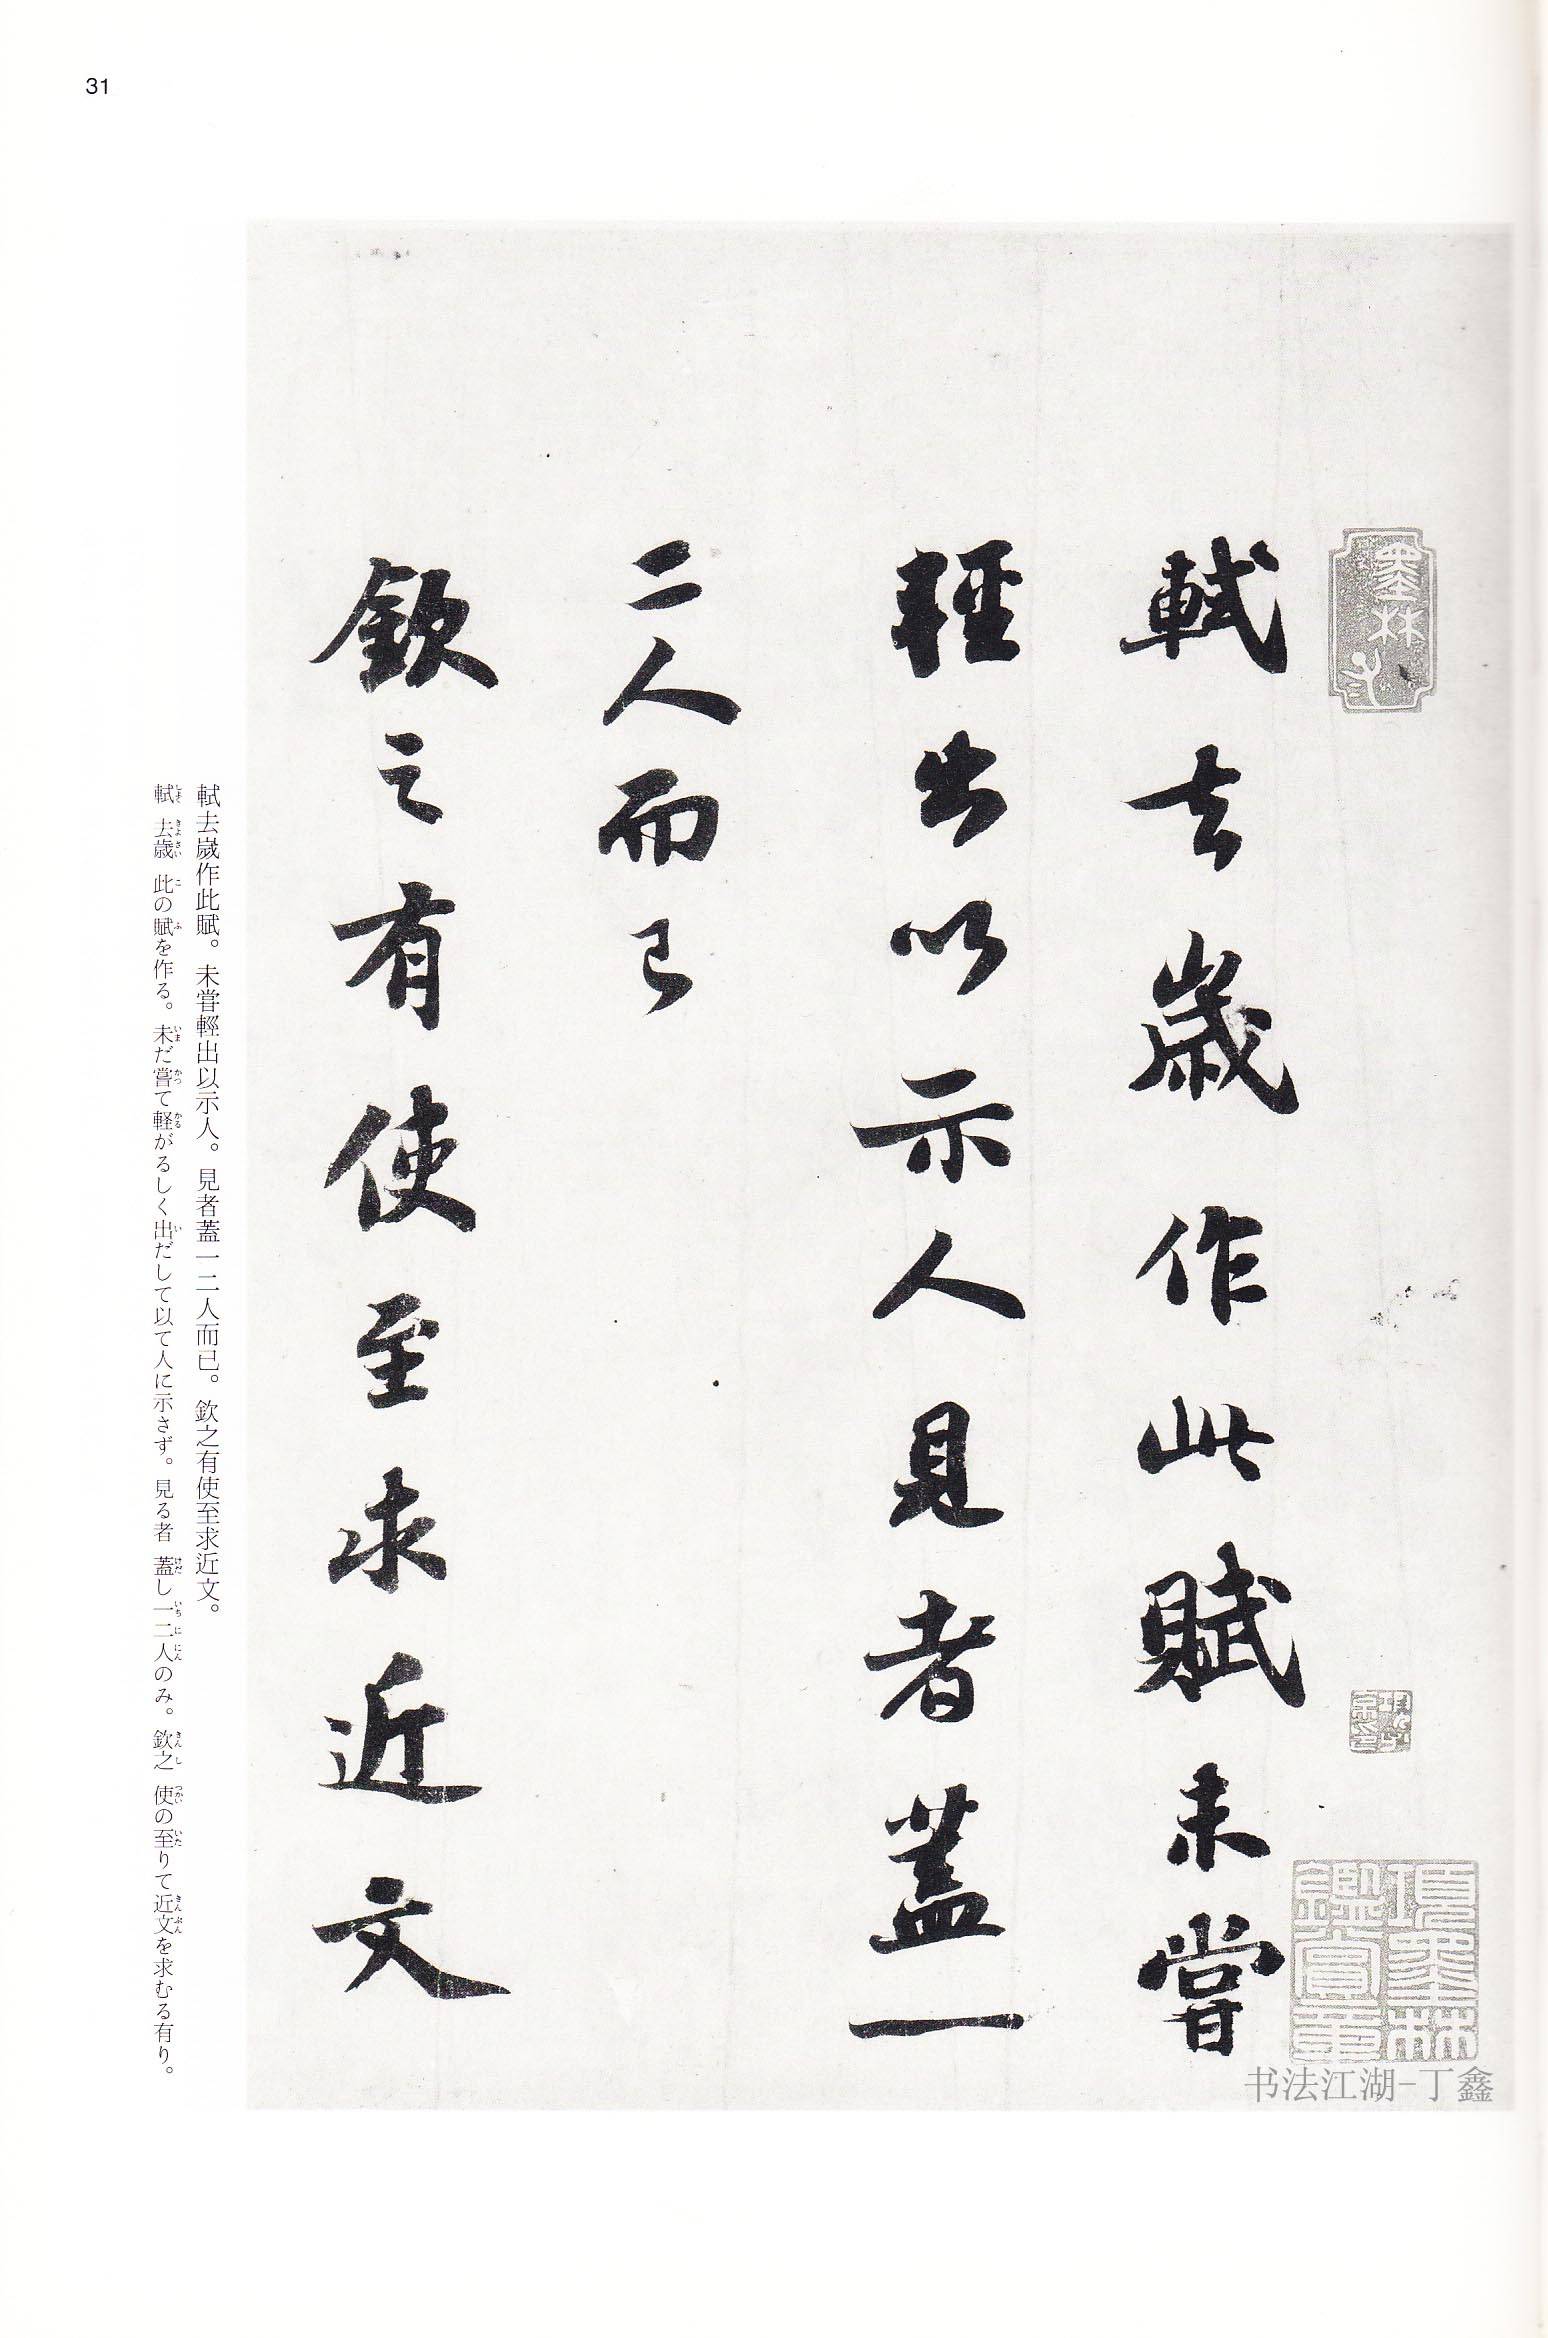 31
軾去歲作此賦未甞
輕出以示人見者蓋一
二人而已
欽之有使至求近文
墨林
項墨林
鑑賞章
书法江湖-丁鑫
軾去歲作此賦。未甞輕出以示人。見者蓋一二人而已。欽之有使至求近文。
軾 去歳 此の賦を作る。未だ嘗て軽がるしく出だして以て人に示さず。見る者 蓋し一二人のみ。欽之 使の至りて近文を求むる有り。